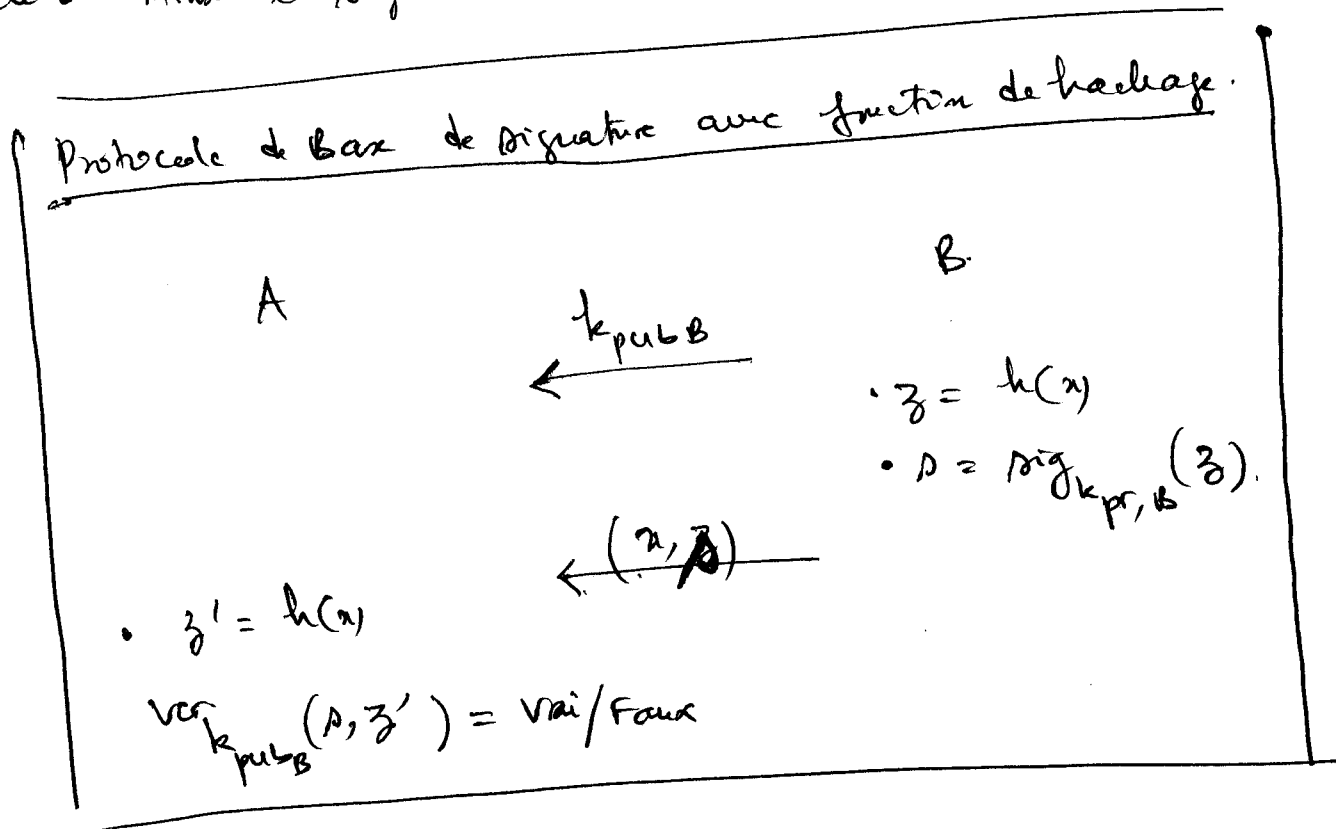 Protocole de Base de signature avec fonction de hachage.
A B.
k_pubB
• z = h(x)
• s = sig_k_pr,B (z).
(x, s)
• z' = h(x)
ver_k_pubB (s, z') = Vrai/Faux